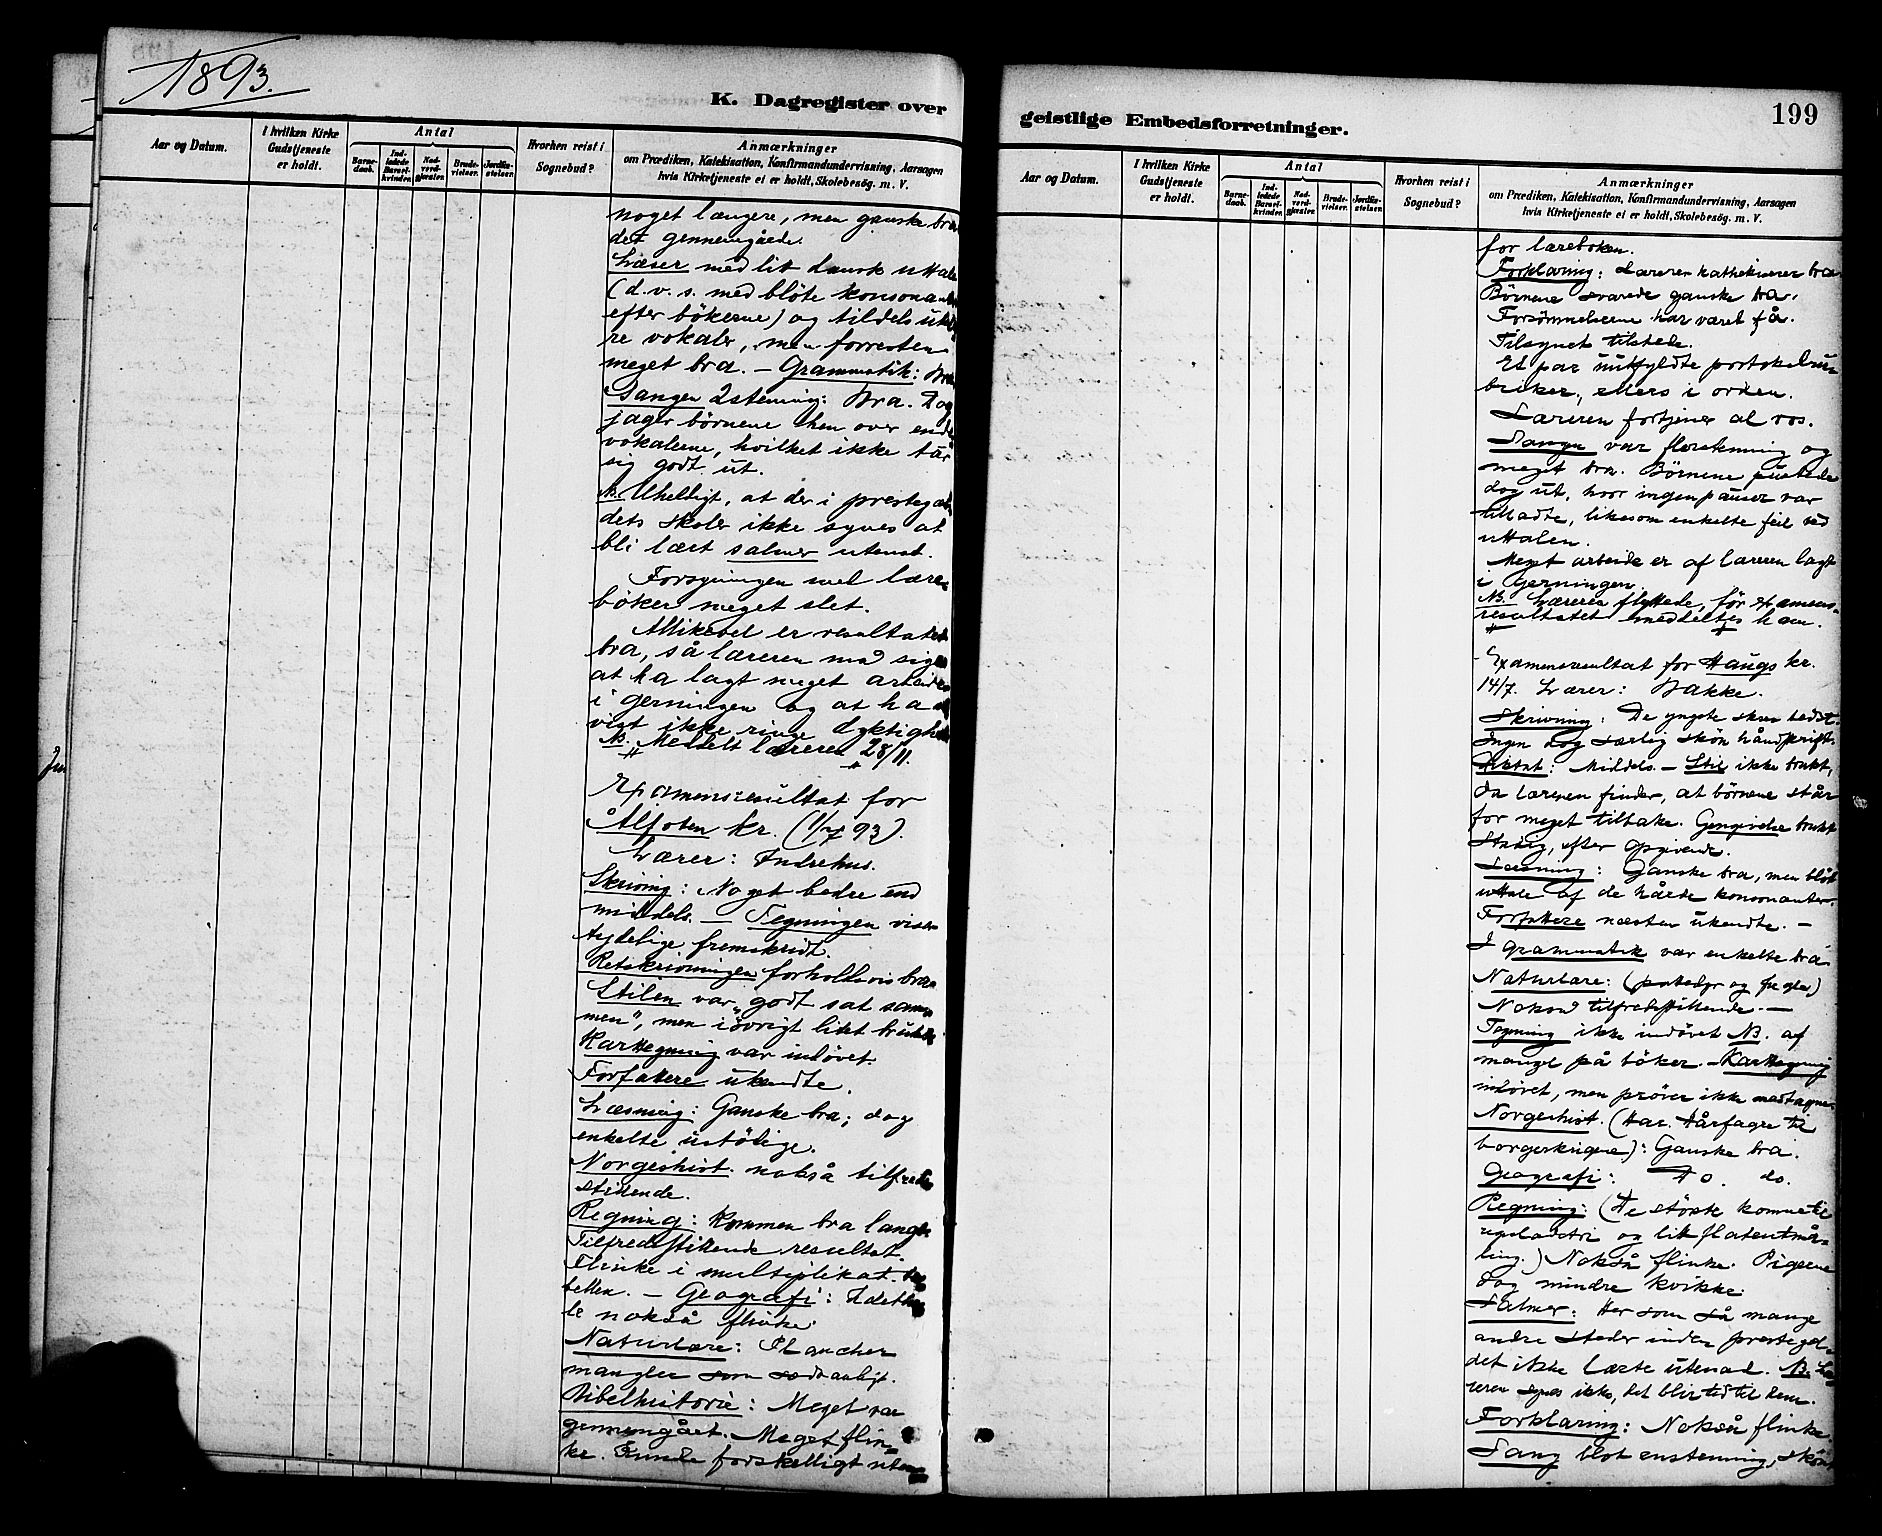 1893.
K. Dagregister over
Aar og Datum.
I hvilken Kirke
Gudstjeneste
er holdt.
Antal
Barne-
daab.
Ind-
ledede
Barsel-
kvinder.
Nad-
verd-
gjæster.
Brude-
vielser.
Jordfæ-
stelser.
Hvorhen reist i
Sognebud?
Anmærkninger
om Prædiken, Katekisation, Konfirmandundervisning, Aarsagen
hvis Kirketjeneste ei er holdt, Skolebesøg. m. V.
noget længere, men ganske bra
det gennemgåede.
Læser med lit dansk uttale
(d. v. s. med blöte konsonanter
efter bökerne) og tildels
re vokaler, men forresten
meget bra. – Grammatik: Bra
Sangen 2stemmig: Bra. Dog
jager börnene hen over ende
vokalerne, hvilket ikke tar
sig godt ut.
NB. Uheldigt, at der i prestegjæl
dets skoler ikke synes at
bli lært salmer utenat.
Forsyningen med lære
böker meget slet.
Allikevel er resultatet
bra, så læreren må siges
at ha lagt meget arbeide
i gerningen og at ha
vist ikke ringe dyktighet
NB. Meddelt læreren 28/11.
Examensresultat for
Ålfoten kr. (1/7 93).
Lærer: Indrehus.
Skrivning: Noget bedre end
middels. – Tegningen viser
tydelige fremskridt.
Retskrivningen forholdsvis bra
Stilen var „godt sat sam-
men", men iövrigt litet brukt
Karttegning var indövet.
Forfattere ukendte.
Læsning: Ganske bra; dog
enkelte ustödige.
Norgeshist. nokså tilfreds
stillende.
Regning: Kommen bra langt
Tilfredsstillende resultat.
Flinke i multiplikat. ta-
bellen. – Geografi: I det he
le nokså flinke.
Naturlære: Plancher
mangler som sedvanligt.
Bibelhistorie: Meget var
gennemgået. Meget flin-
ke. Kunde forskelligt uten
geistlige Embedsforretninger.
199
Aar og Datum.
I hvilken Kirke
Gudstjeneste
er holdt.
Antal
Barne-
daab.
Ind-
ledede
Barsel-
kvinder.
Nad-
verd-
gjæster.
Brude-
vielser.
Jordfæ-
stelser.
Hvorhen reist i
Sognebud?
Anmærkninger
om Prædiken, Katekisation, Konfirmandundervisning, Aarsagen
hvis Kirketjeneste ei er holdt, Skolebesög. m. V.
for læreboken.
Forklaring: Læreren kathekiserer bra
Börnene svarede ganske bra.
Forsömmelserne har været få.
Tilsynet tilstede.
Et par uutfyldte protokolru-
briker, ellers i orden.
Læreren fortjener al ros.
Sangen var flerstemmig og
meget bra. Börnene pustede
dog ut, hvor ingen pauser var
tilladte, likesom enkelte feil ved
uttalen.
Meget arbeide er af læreren lagt
i gerningen.
NB. Læreren flyttede, för examens-
resultatet meddeltes ham.
Examensresultat for Haugs kr.
14/7. Lærer: Bakke.
Skrivning: De yngste skrev bedst.
Ingen dog særlig skön håndskrift.
Diktat: Middels. – Stil ikke brukt,
da læreren finder, at börnene står
for meget tilbake. Gengivelse brukt
stadig, efter opgivende.
Læsning: Ganske bra, men blöt
uttale af de hårde konsonanter.
Forfattere næsten ukendte. –
I grammatik var enkelte bra
Naturlære: (pattedyr og fugle)
Nokså tilfredsstillende. –
Tegning ikke indövet NB. af
mangel på böker. – Karttegning
indövet, men pröver ikke medtagne.
Norgeshist. (Har. Hårfagre til
borgerkrigene): Ganske bra.
Geografi: Do. do.
Regning: (De störste komne til
reguladetri og lit flateutmå-
ling.) Nokså flinke. Pigerne
dog mindre kvikke.
Salmer: Her som så mange
andre steder inden prestegjel-
det ikke lærte utenad. NB. Læ-
reren synes ikke, det blir tid til dem.
Forklaring: Nokså flinke
Sang blot enstemmig,